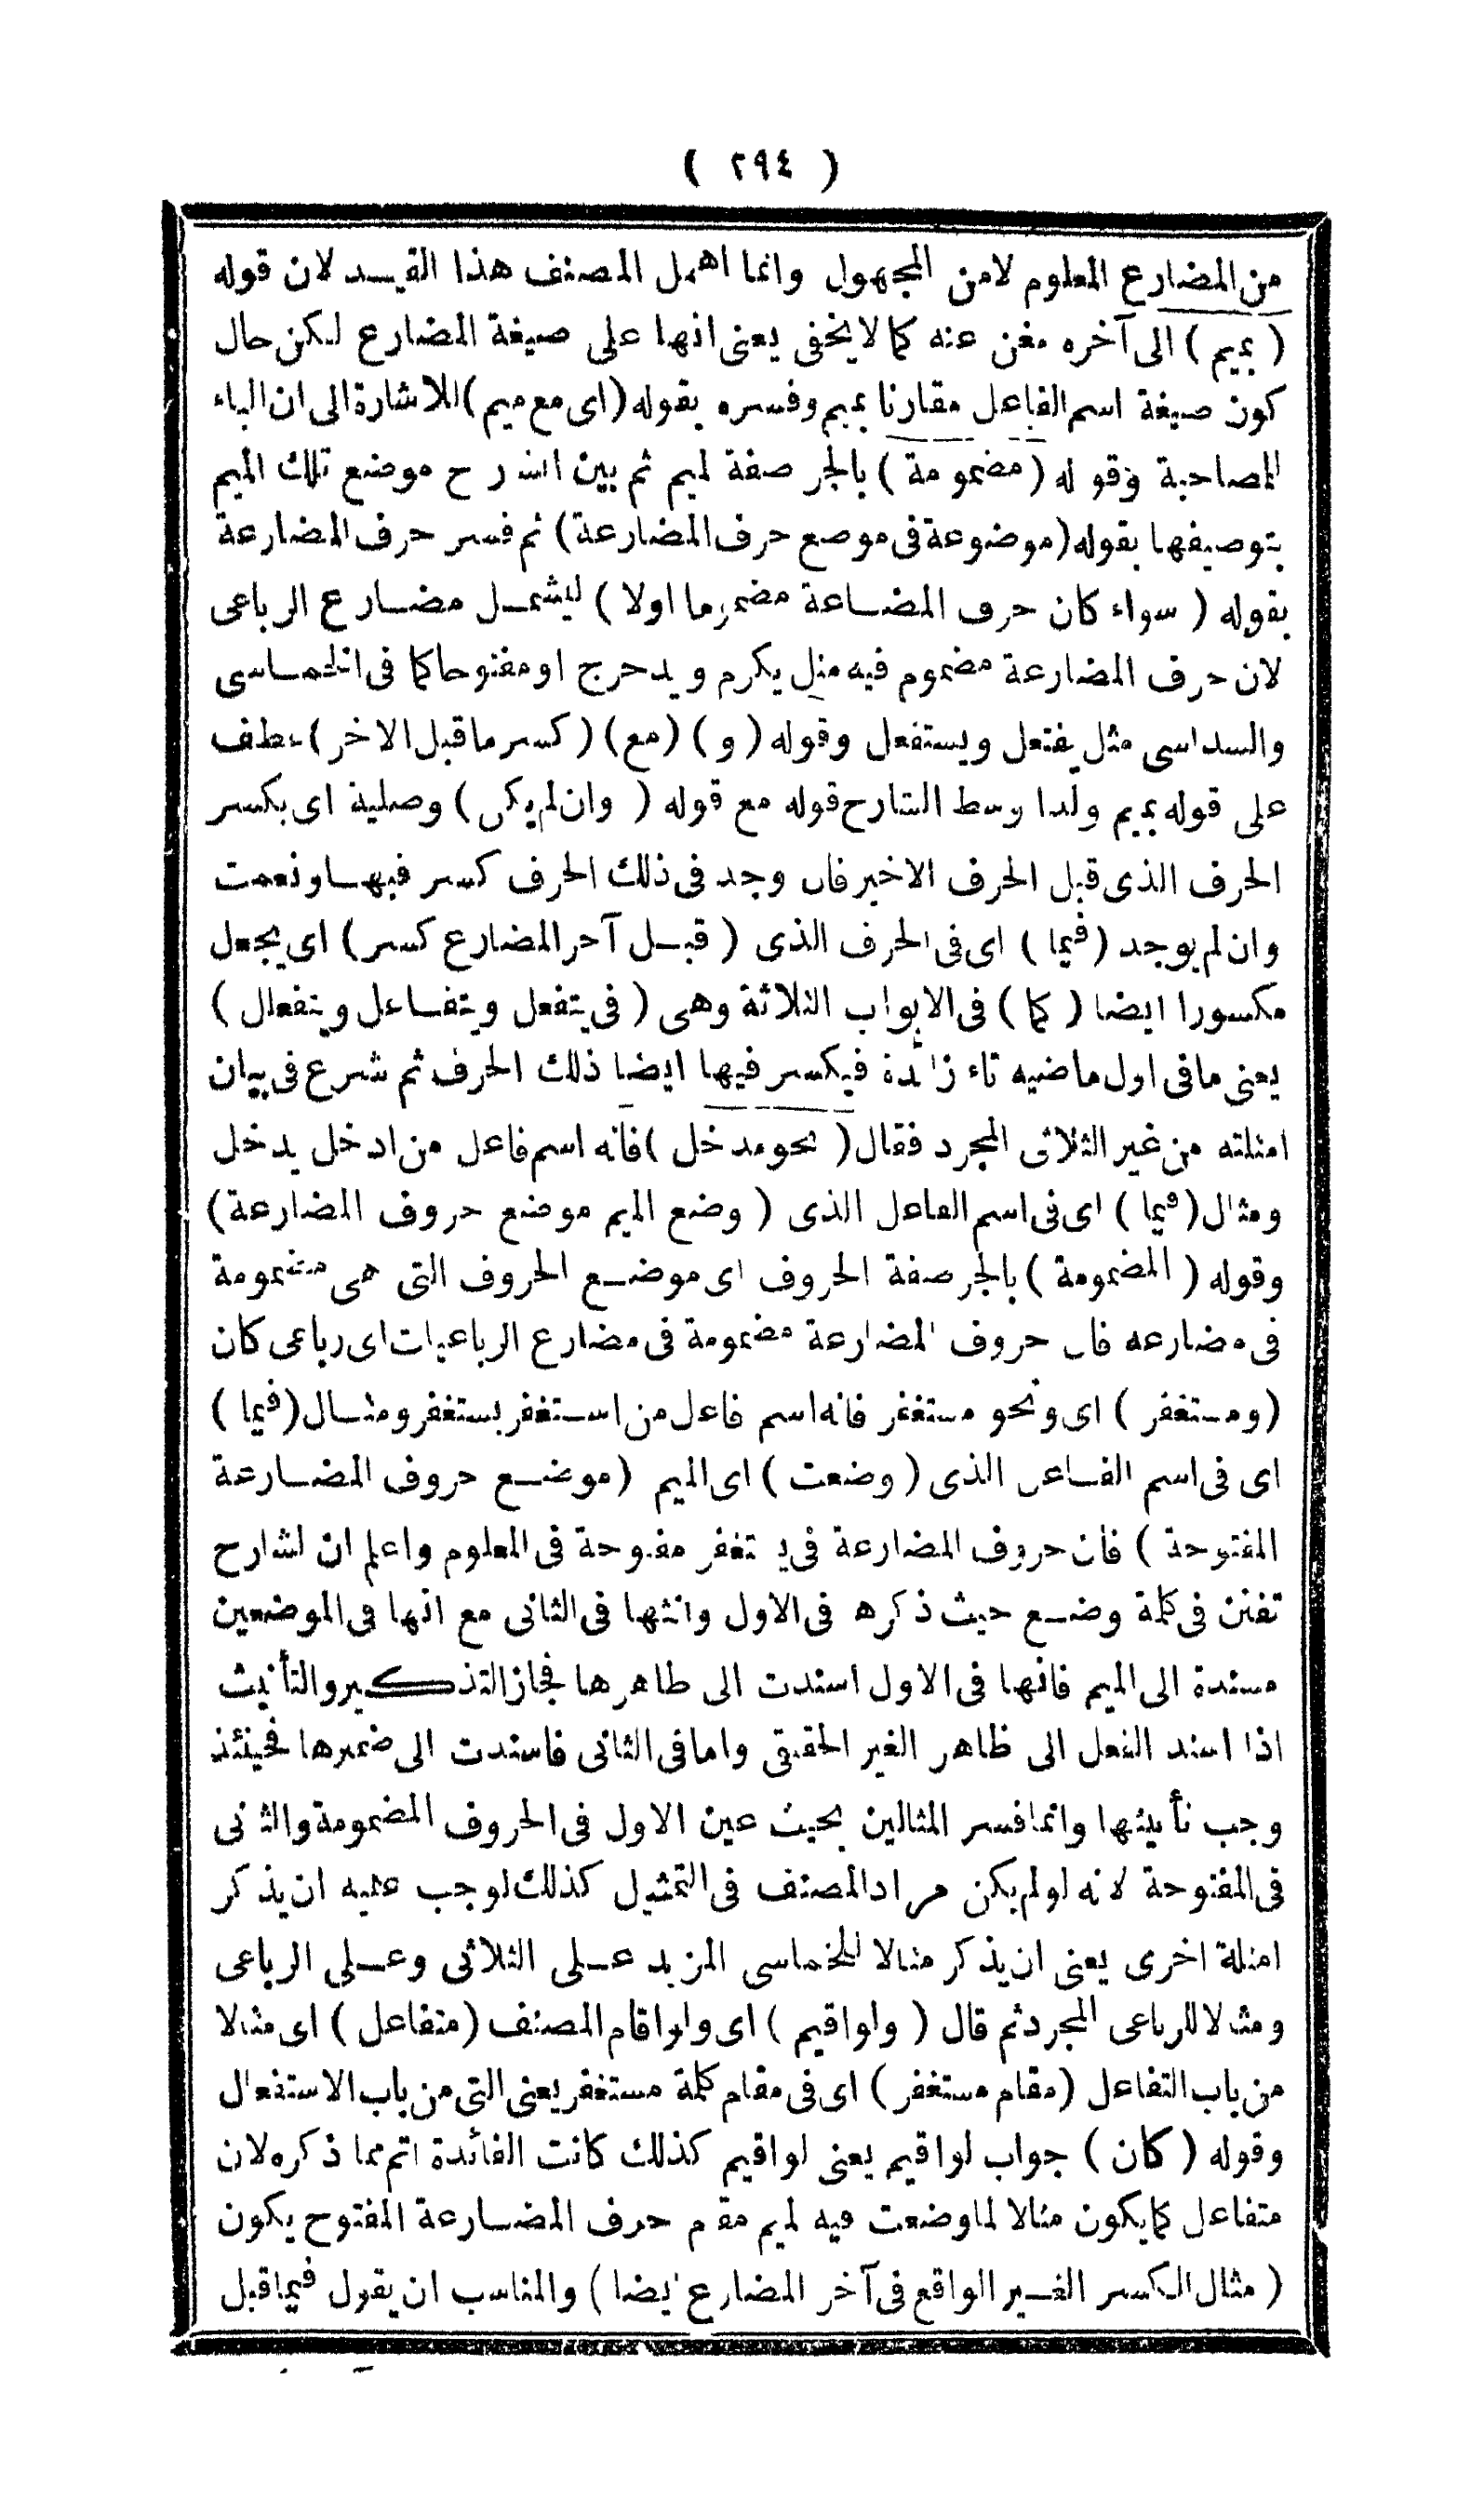 ( ٢٩٤ )
من المضارع المعلوم لامن المجهول وانما اهمل المصنف هذا القيد لان قوله
( بميم ) الى آخره مغن عنه كما لا يخفى يعنى انها على صيغة المضارع لكن حال
كون صيغة اسم الفاعل مقارنا بميم وفسره بقوله (اى مع ميم) للاشارة الى ان الباء
للمصاحبة وقوله ( مضمومة ) بالجر صفة لميم ثم بين الشارح موضع تلك الميم
بتوصيفها بقوله (موضوعة فى موضع حرف المضارعة) ثم فسر حرف المضارعة
بقوله ( سواء كان حرف المضاعة مضموما اولا ) ليشمل مضارع الرباعى
لان حرف المضارعة مضموم فيه مثل يكرم ويدحرج او مفتوحا كما فى الخماسى
والسداسى مثل يفتعل ويستفعل وقوله ( و ) (مع) ( كسر ما قبل الاخر) عطف
على قوله بميم ولذا وسط الشارح قوله مع قوله ( وان لم يكن ) وصلية اى بكسر
الحرف الذى قبل الحرف الاخير فان وجد فى ذلك الحرف كسر فبها ونعمت
وان لم يوجد (فيما ) اى فى الحرف الذى ( قبل آخر المضارع كسر ) اى يجعل
مكسورا ايضا ( كما ) فى الابواب الثلاثة وهى ( فى يتفعل ويتفاعل ويتفعلل )
يعنى ما فى اول ماضيه تاء زائدة فيكسر فيها ايضا ذلك الحرف ثم شرع فى بيان
امثلته من غير الثلاثى المجرد فقال ( نحو مدخل ) فانه اسم فاعل من ادخل يدخل
ومثال ( فيما ) اى فى اسم الفاعل الذى ( وضع الميم موضع حروف المضارعة )
وقوله ( المضمومة ) بالجر صفة الحروف اى موضع الحروف التى هى مضمومة
فى مضارعه فان حروف المضارعة مضمومة فى مضارع الرباعيات اى رباعى كان
( ومستغفر ) اى ونحو مستغفر فانه اسم فاعل من استغفر يستغفر ومثال ( فيما )
اى فى اسم الفاعل الذى ( وضعت ) اى الميم ( موضع حروف المضارعة
المفتوحة ) فان حروف المضارعة فى يستغفر مفتوحة فى المعلوم واعلم ان الشارح
تفنن فى كلمة وضع حيث ذكره فى الاول وانثها فى الثانى مع انها فى الموضعين
مسندة الى الميم فانها فى الاول اسندت الى ظاهرها فجاز التذكير والتأنيث
اذا اسند الفعل الى ظاهر الغير الحقيقى واما فى الثانى فاسندت الى ضميرها فحينئذ
وجب تأنيثها وانما فسر المثالين بحيث عين الاول فى الحروف المضمومة والثانى
فى المفتوحة لانه لو لم يكن مراد المصنف فى التمثيل كذلك لوجب عليه ان يذكر
امثلة اخرى يعنى ان يذكر مثالا للخماسى المزيد على الثلاثى وعلى الرباعى
ومثالا للرباعى المجرد ثم قال ( ولو اقيم ) اى ولو اقام المصنف ( متفاعل ) اى مثالا
من باب التفاعل ( مقام مستغفر ) اى فى مقام كلمة مستغفر يعنى التى من باب الاستفعال
وقوله ( كان ) جواب لو اقيم يعنى لو اقيم كذلك كانت الفائدة اتم مما ذكره لان
متفاعل كما يكون مثالا لما وضعت فيه الميم مقام حرف المضارعة المفتوح يكون
( مثال الكسر الغير الواقع فى آخر المضارع ايضا ) والمناسب ان يقول فيما قبل